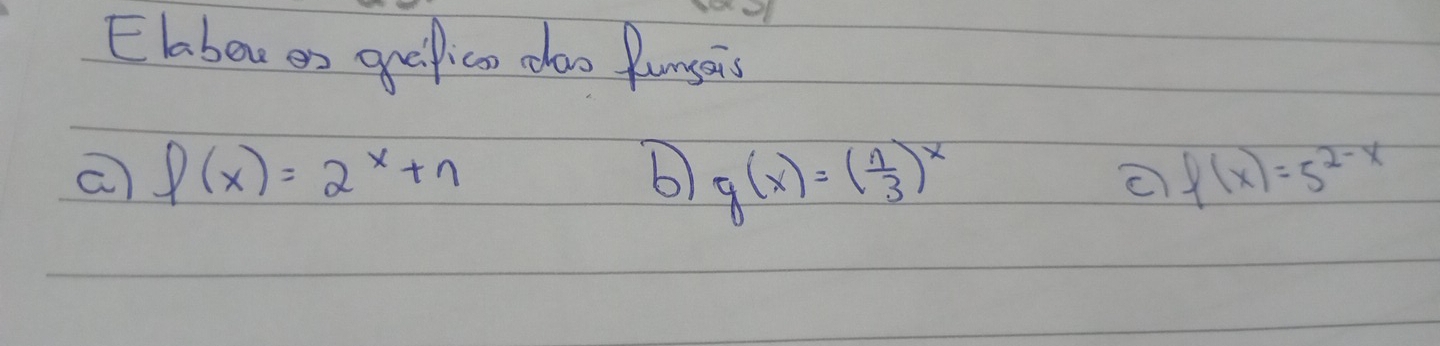 Elabore os gráficos das funsois
a) f(x) = 2^x + 1 b) g(x) = (1/3)^x c) f(x) = 5^{2-x}